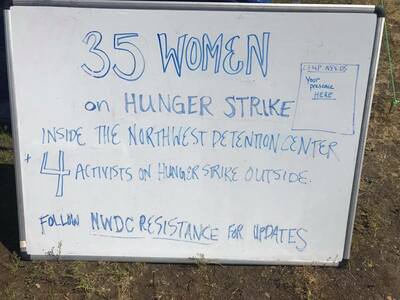 35 WOMEN
on HUNGER STRIKE
INSIDE THE NORTHWEST DETENTION CENTER
+ 4 ACTIVISTS ON HUNGER STRIKE OUTSIDE.
FOLLOW NWDC RESISTANCE FOR UPDATES
CAMP NEEDS
Your
presence
HERE